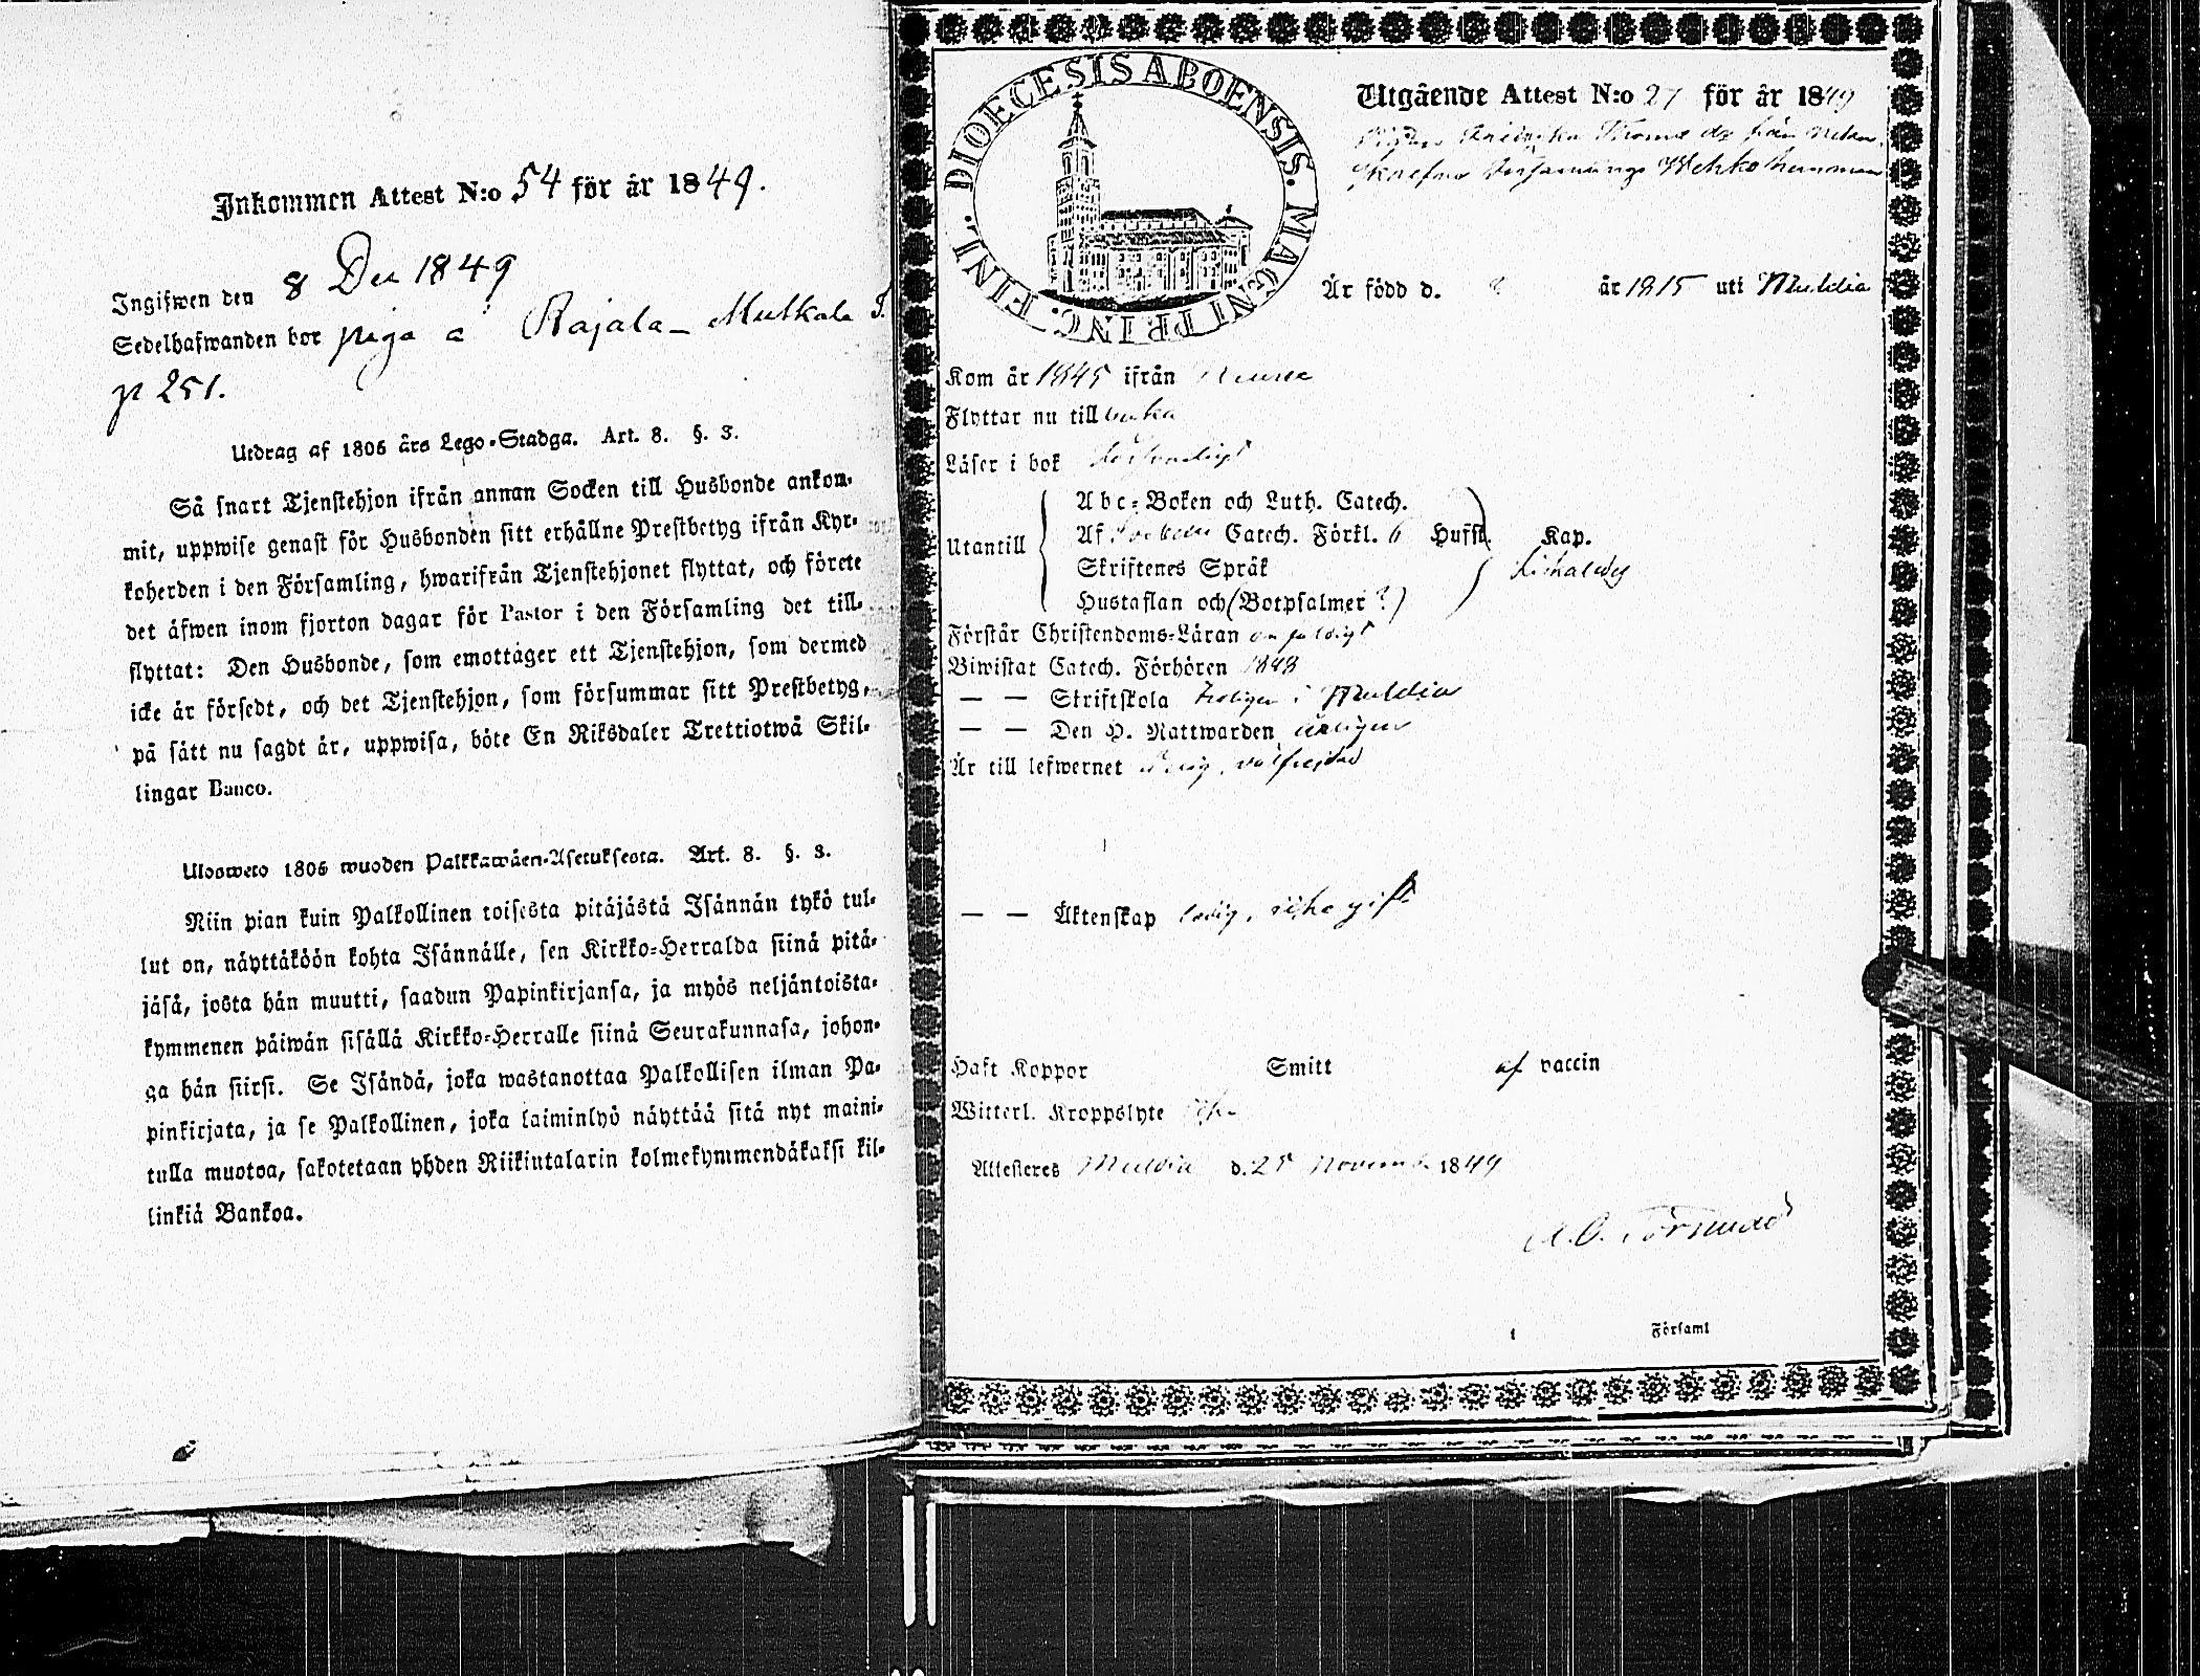 Inkommen Attest N:o 54 för år 1849.
Ingifwen den 8 Dec 1849
Sedelhafwanden bor piga å Rajala - Mutkala
p 251.
Utdrag af 1805 års Lego-Stadga. Art. 8. §. 3.
Så snart Tjenstehjon ifrån annan Socken till Husbonde ankom-
mit, uppwise genast för Husbonden sitt erhållne Prestbetyg ifrån Kyr-
koherden i den Församling, hwarifrån Tjenstehjonet flyttat, och förete
det äfwen inom fjorton dagar för Pastor i den Församling det till-
flyttat: Den Husbonde, som emottager ett Tjenstehjon, som dermed
icke är försedt, och det Tjenstehjon, som försummar sitt Prestbetyg,
på sätt nu sagdt är, uppwisa, böte En Riksdaler Trettiotwå Skil-
lingar Banco.
Ulosweto 1805 wuoden Palkkawäen-Asetuksesta. Art. 8. §. 3.
Niin pian kuin Palkollinen toisesta pitäjästä Isännän tykö tul-
lut on, näyttäköön kohta Isännälle, sen Kirkko-Herralda siinä pitä-
jäsä, josta hän muutti, saadun Papinkirjansa, ja myös neljäntoista-
kymmenen päiwän sisällä Kirkko-Herralle siinä Seurakunnasa, johon-
ga hän siirsi. Se Isändä, joka wastanottaa Palkollisen ilman Pa-
pinkirjata, ja se Palkollinen, joka laiminlyö näyttää sitä nyt maini-
tulla muotoa, sakotetaan yhden Riikintalarin kolmekymmendäkaksi kil-
linkiä Bankoa.
DIOECESIS ABOENSIS. MAGNI PRINC. FINL.
Utgående Attest N:o 27 för år 1849
Pigan dr från
Församlings hemman
Är född d. år 1815 uti Muldia
Kom år 1845 ifrån
Flyttar nu till
Läser i bok försvarligt
Abc-Boken och Luth. Catech.
Utantill Af Catech. Förkl. 6 Hufst. Kap.
Skriftenes Språk
Hustaflan och (Botpsalmer?)
Förstår Christendoms-Läran enfaldigt
Biwistat Catech. Förhören 1848
— — Skriftskola i Muldia
— — Den H. Nattwarden årligen
Är till lefwernet wälfrejdad
— — Äktenskap ledig, icke gift
Haft Koppor Smitt af vaccin
Witterl. Kroppslyte
Attesteres Muldia d. 25 November 1849
Församl